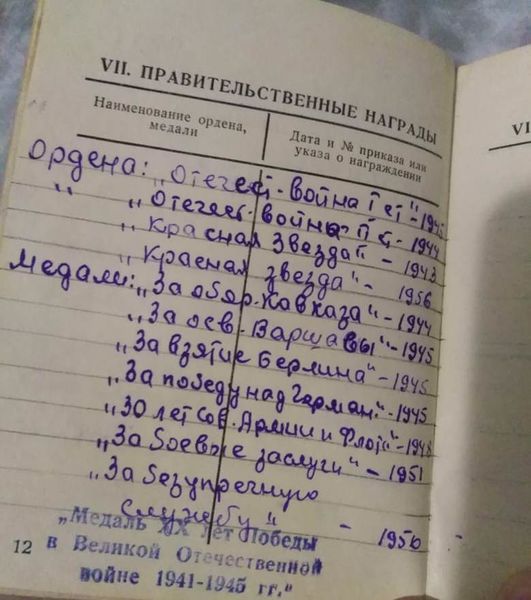 VII. ПРАВИТЕЛЬСТВЕННЫЕ НАГРАДЫ
Наименование ордена, медали
Дата и № приказа или указа о награждении
Ордена: „Отечест. война I ст" - 1945
" „Отечест. война II ст. - 1944
„Красная Звезда" - 1943
„Красная звезда" - 1956
Медали: „За обор. Кавказа" - 1944
„За осв. Варшавы" - 1945
„За взятие Берлина" - 1945
„За победу над Герман." - 1945
„30 лет Сов. Армии и Флота" - 1948
„За боевые заслуги" - 1951
„За безупречную
службу" - 1956
„Медаль XX лет Победы
в Великой Отечественной
войне 1941-1945 гг."
12
VI